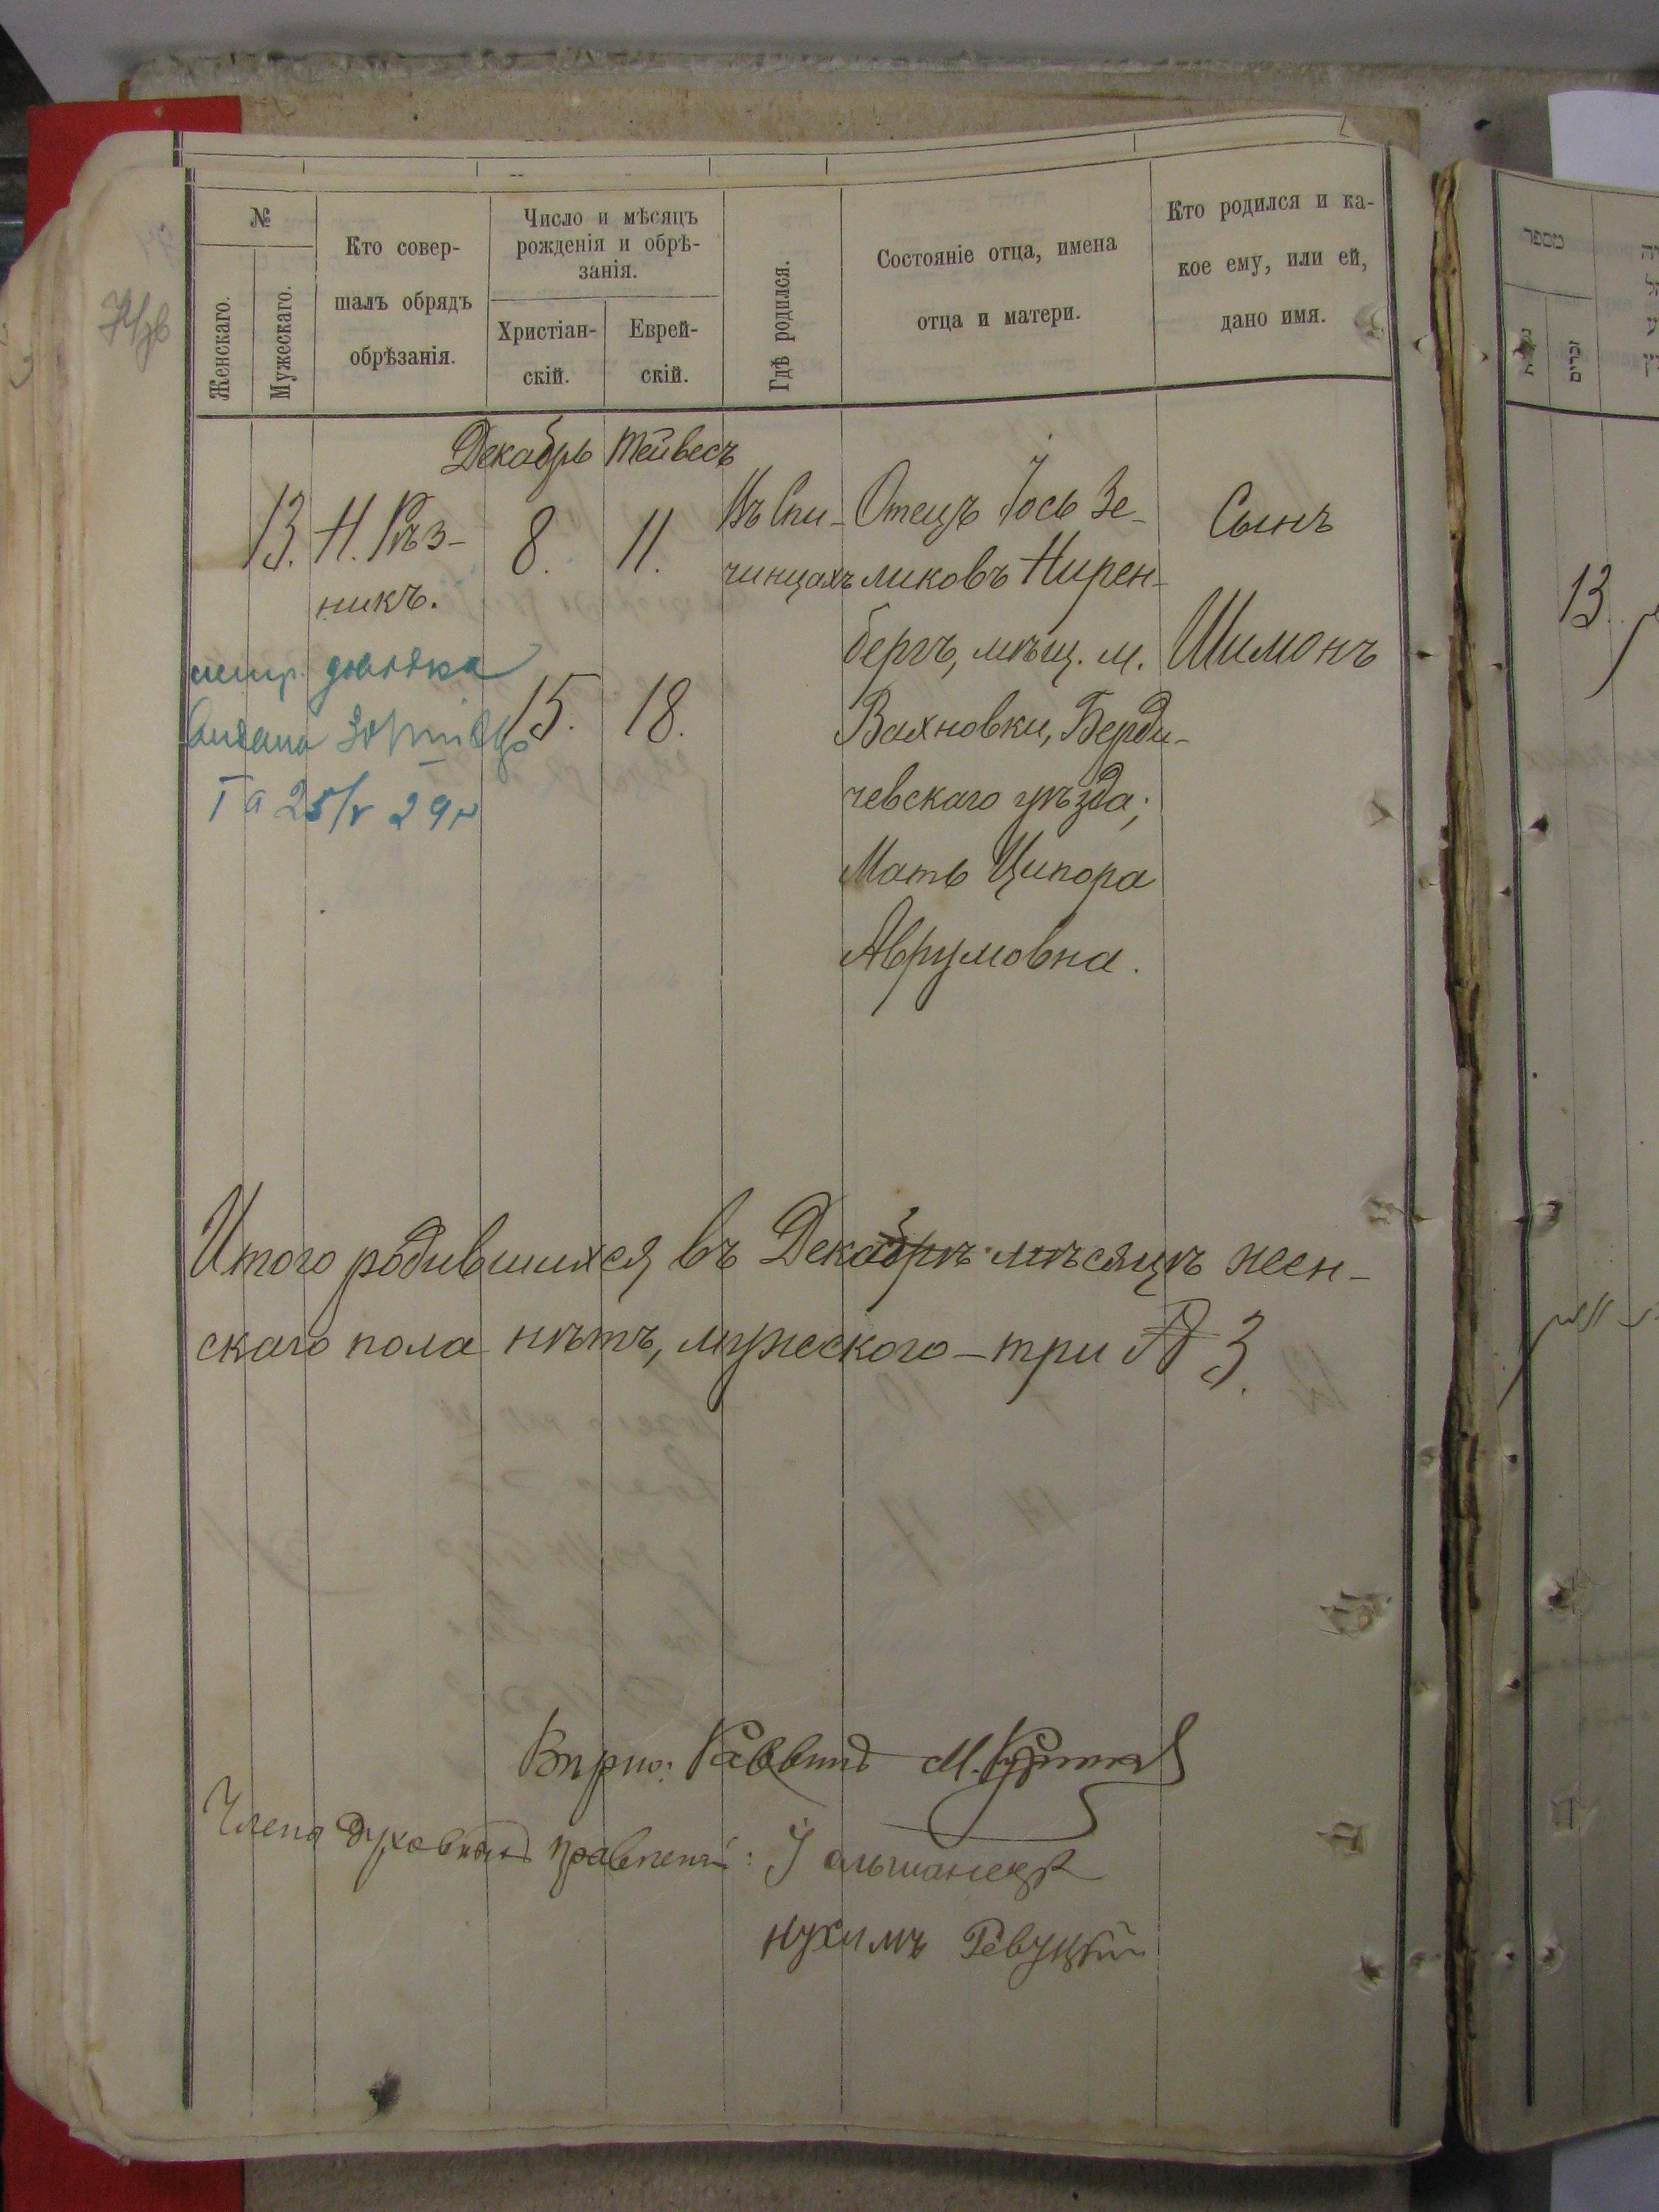 №
Женскаго.
Мужескаго.
Кто совер-
шалъ обрядъ
обрѣзанія.
Число и мѣсяцъ
рожденія и обрѣ-
занія.
Христіан-
скій.
Еврей-
скій.
Гдѣ родился.
Состояніе отца, имена
отца и матери.
Кто родился и ка-
кое ему, или ей,
дано имя.
Декабрь Тейвесъ
13. Н. Рѣз-
никъ.
8. 11.
15. 18.
Въ Спи-
чинцахъ
Отецъ Іось Зе-
ликовъ Нирен-
бергъ, мѣщ. м.
Вахновки, Берди-
чевскаго уѣзда;
Мать Ципора
Аврумовна.
Сынъ
Шимонъ
25/V 29 г
Итого родившихся въ Декабрѣ мѣсяцѣ жен-
скаго пола нѣтъ, мужеского – три 3.
Вѣрно: Раввинъ М.
Члены духовнаго правленія: І Ольшанецкій
Нухимъ Ревуцкій
מספר
זכרים
13.